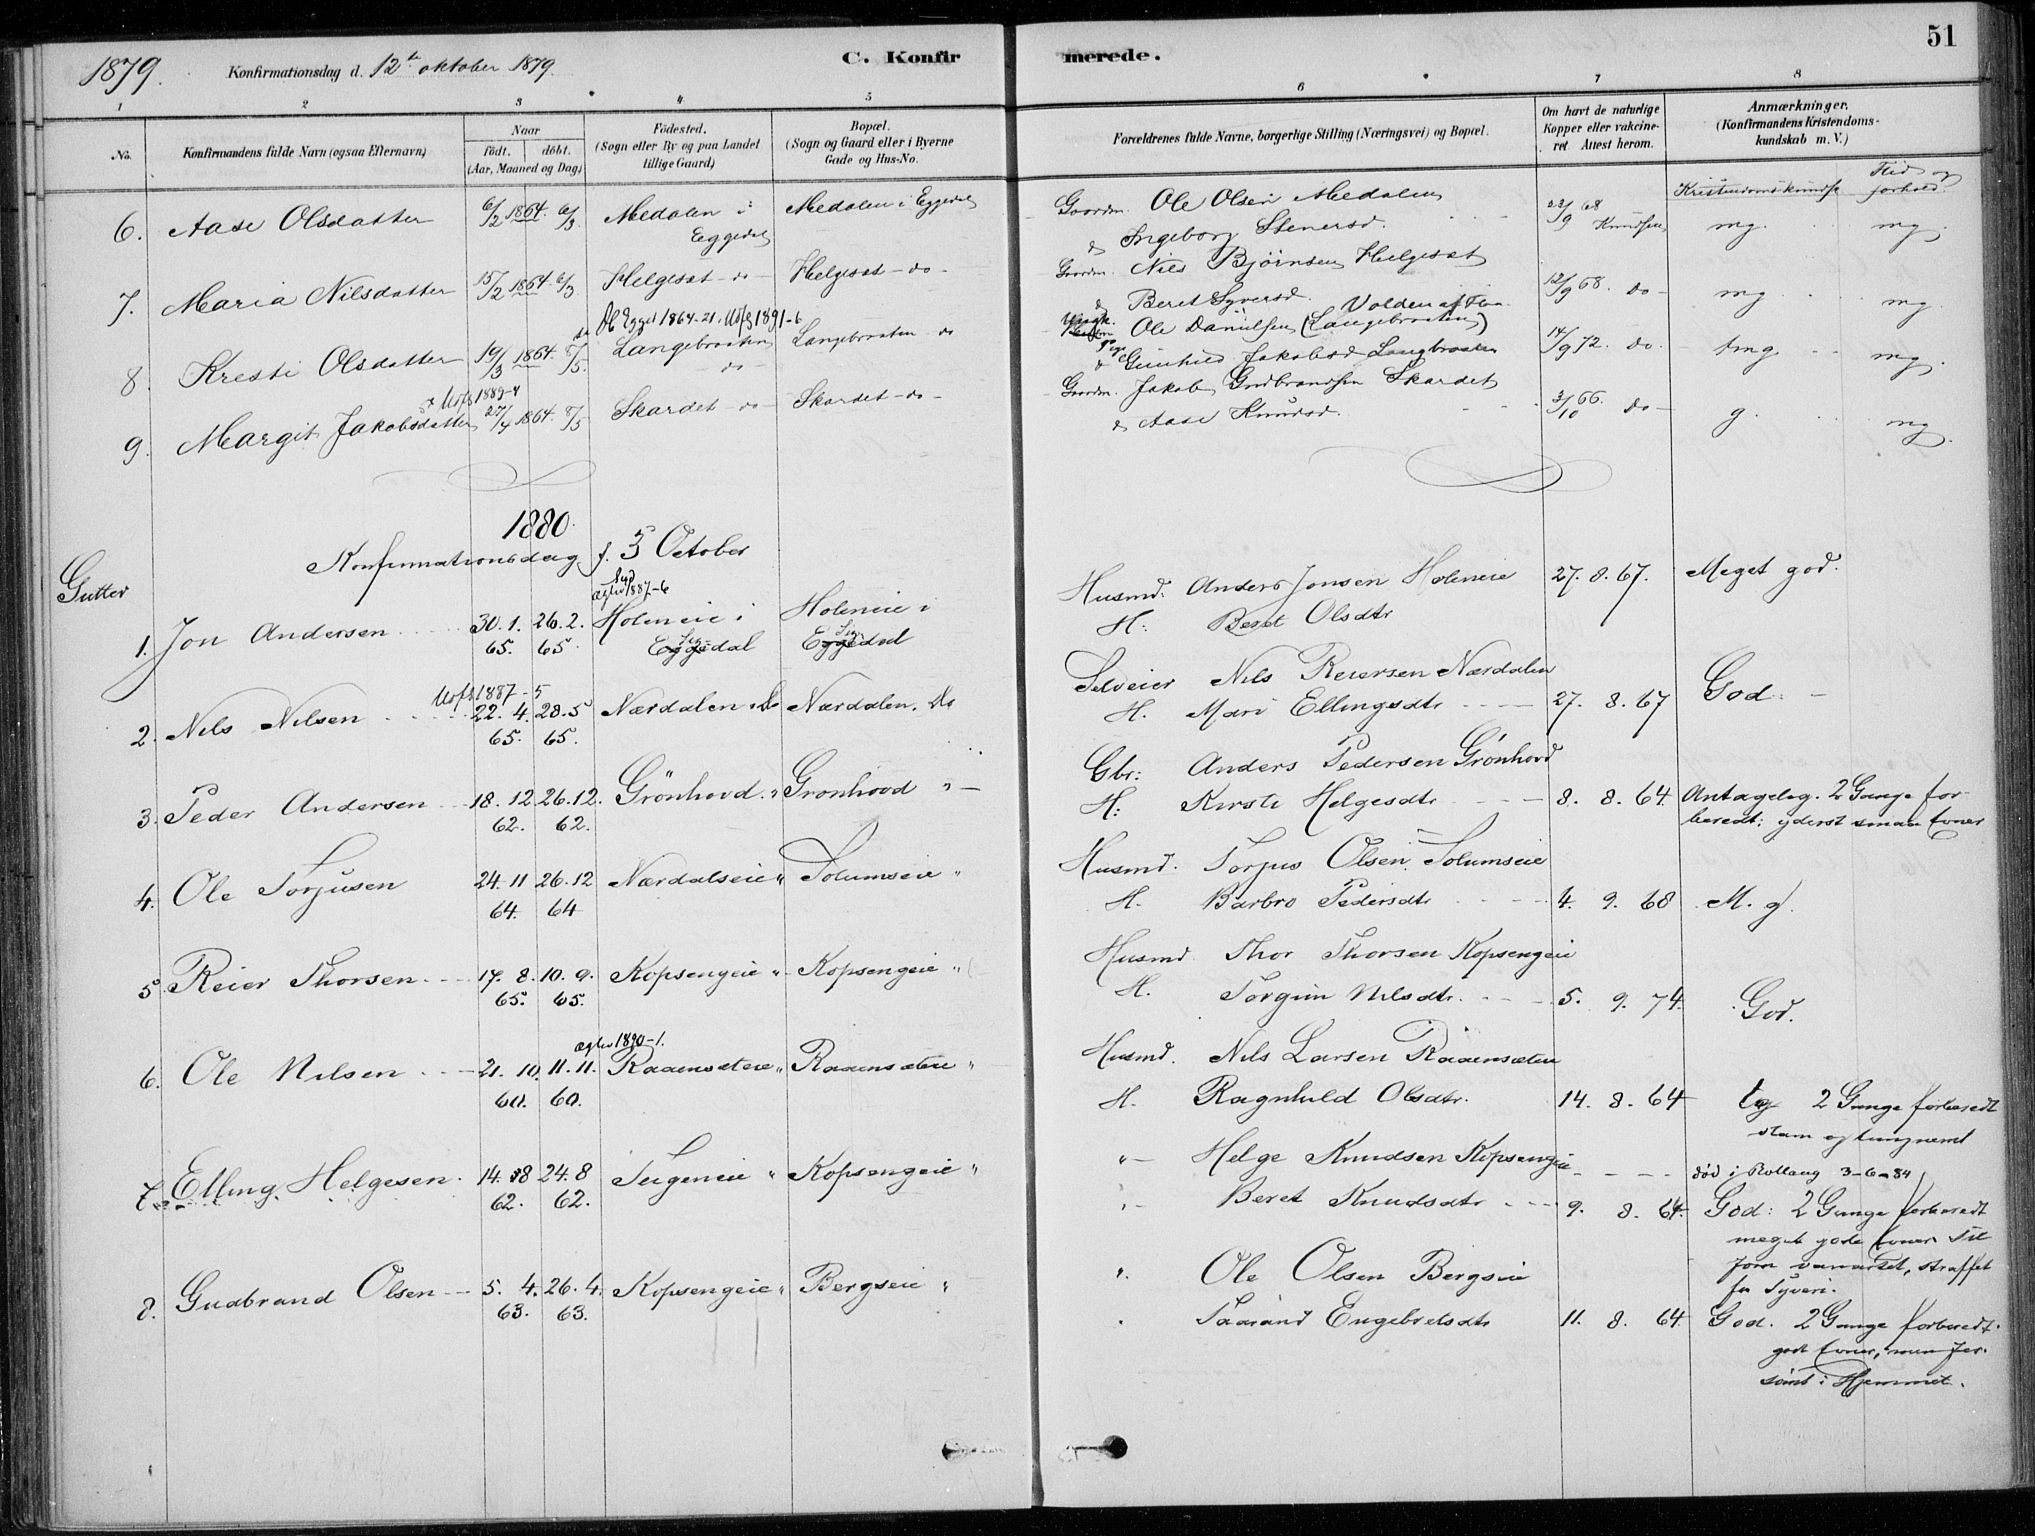 51
1879. Konfirmationsdag d. 12te oktober 1879. C. Konfirmerede.
1 2 3 4 5 6 7 8
No. Konfirmandens fulde Navn (ogsaa Efternavn) Naar født. døbt. (Aar, Maaned og Dag) Fødested. (Sogn eller By og paa Landet tillige Gaard) Bopæl. (Sogn og Gaard eller i Byerne Gade og Hus-No. Forældrenes fulde Navne, borgerlige Stilling (Næringsvei) og Bopæl. Om havt de naturlige Kopper eller vakcineret Attest herom. Anmærkninger. (Konfirmandens Kristendomskundskab m. V.)
Kristendomskundsk Flid og forhold.
6. Aase Olsdatter 6/2 1864. 6/3. Medalen i Eggedal Medalen i Eggedal Gaardm. Ole Olsen Medalen 22/9 68 Knudsen mg. mg.
& Ingeborg Stenersd.
7. Maria Nilsdatter 15/2 1864. 6/3. Helgeset - do - Helgeset - do - Gaardm. Nils Bjørnsen Helgeset 12/9 68. do - mg mg
& Beret Syversd.
1864-21. 1891-6
8. Kresti Olsdatter 19/3 1864. 8/5. Langebraaten do - Langebraaten do Ole Danielsen (Langebraaten) Volden 14/9 72. do tmg mg.
& Gunhild Jakobsd. Langbraaten
1889-4
9. Margit Jakobsdatter 27/4 1864. 8/5 Skardet - do - Skardet - do - Gaardm. Jakob Gudbrandsen Skardet 3/10 66. do - g. mg.
& Aase Knudsd.
1880.
Konfirmationsdag f. 3 October
Gutter
1887-6
1. Jon Andersen 30. 1. 65. 26. 2. 65. Holeneie i Eggedal Holeneie i Eggedal Husmd. Anders Jonsen Holeneie 27. 8. 67. Meget god.
H: Beret Olsdtr
1887-5
2. Nils Nilsen 22. 4. 65. 28. 5 65. Nærdalen i Do Nærdalen. Do Selveier Nils Reiersen Nærdalen
H. Mari Ellingsdtr 27. 8. 67 God. -
3. Peder Andersen 18. 12. 62. 26. 12. 62. Grønhovd. " Grønhovd " - Gbr: Anders Pedersen Grønhovd
H: Kirsti Helgesdtr 8. 8. 64. Antagelig. 2 Gange forberedt; yderst smaa Evner
4. Ole Torjusen 24. 11 64. 26. 12 64 Nærdalseie " Solumseie " Husmd. Torjus Olsen Solumseie
H. Barbro Pedersdtr 4. 9. 68 M. g.
5. Reier Thorsen 17. 8. 65. 10. 9. 65. Kopsengeie " Kopsengeie " Husmd Thor Thorsen Kopsengeie
H. Torgun Nilsdtr. 5. 9. 74. God.
1890-1.
6. Ole Nilsen 21. 10. 60. 11. 11. 60. Raaensæteie " Raaensæteie " Husmd. Nils Larsen Raaensæteie
H. Ragnhild Olsdtr. 14. 8. 64 tg 2 Gange forberedt
og tungnemt
7. Elling Helgesen. 14. 8 62. 24. 8 62. " Kopsengeie " " - Helge Knudsen Kopsengeie død i Rollaug 3-6-84
" - Beret Knudsdtr 9. 8. 64. God: 2 Gange forberedt
meget gode Evner Til
vanartet, straffet
for Tyveri.
8. Gudbrand Olsen 5. 4. 63. 26. 4. 63. Kopsengeie " Bergseie " " Ole Olsen Bergseie
Taarand Engebretsdtr 11. 8. 64. God. 2 Gange forberedt.
godt Evner, men forsømt i Hjemmet.